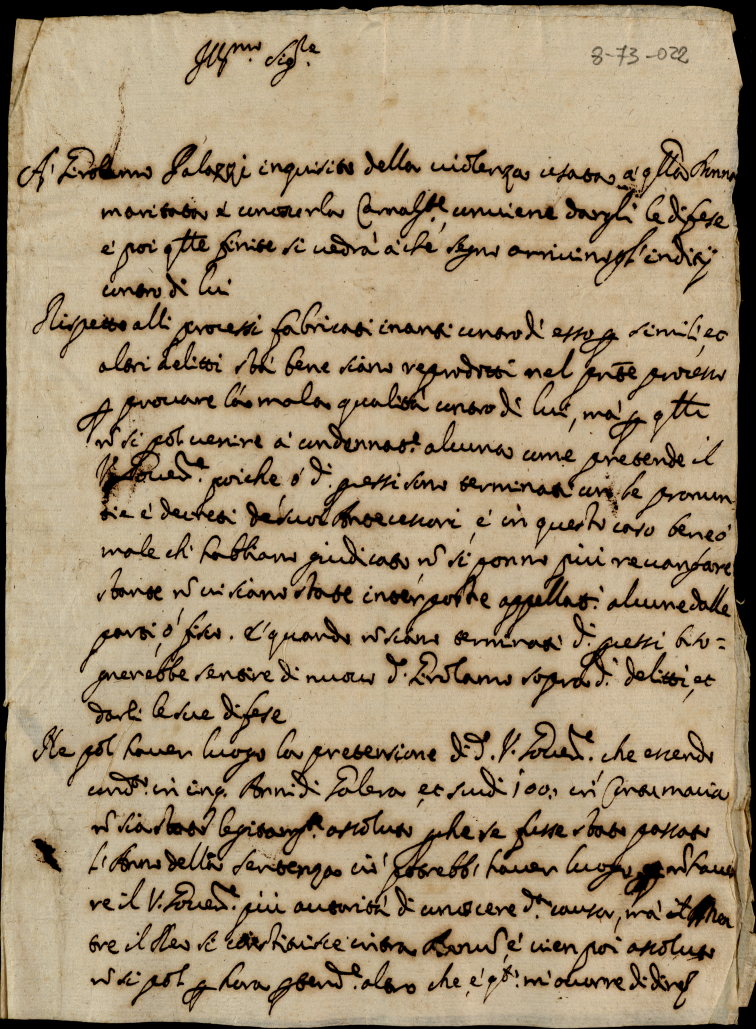 Ill.mo Sig.re
8-73-022
A' Girolamo Palazzi inquisito della violenza usata a q.lla Donna
maritata di conoscerla Carnal.te, conviene dargli le difese
e poi q.lle finite si vedrà à che segno arrivino gl'inditij
contro di lui
Rispetto alli processi fabricati inanti contro di esso p simili, et
altri delitti stà bene siano reprodotti nel pnte processo
p provare la mala qualità contro di lui, mà p q.lli
nõ si pol venire à condennat.e alcuna come pretende il
V. Gover.re poiche ò d.i pcessi sono terminati con le pronun
tie è decreti de suoi Antecessori, è in questo caso bene ò
male ch'habbiano giudicato nõ si ponno più retrattare
stante nõ vi siano state interposte appellat.i alcune dalle
parti, ò fisco. E' quando nõ siano terminati d.i pcessi, biso=
gnerebbe sentire di nuovo d.o Girolamo sopra d.i delitti, et
darli le sue difese
Ne pol haver luogo la pretensione di d.o V. Gover.re che essendo
cond.to in cinq. Anni di Galera, et scudi 100, in Contumacia
nõ sia stato legitam.te assoluto, pche se fusse stato passato
l'Anno della sentenza cio potrebbe haver luogo p nõ have
re il V. Gover.re più autorità di conoscere d.a causa, mà
tre il Reo si costituisce intra Annũ, è vien poi assoluto
nõ si pol p hora ptend.e altro che, è q.to m'occorre di dire